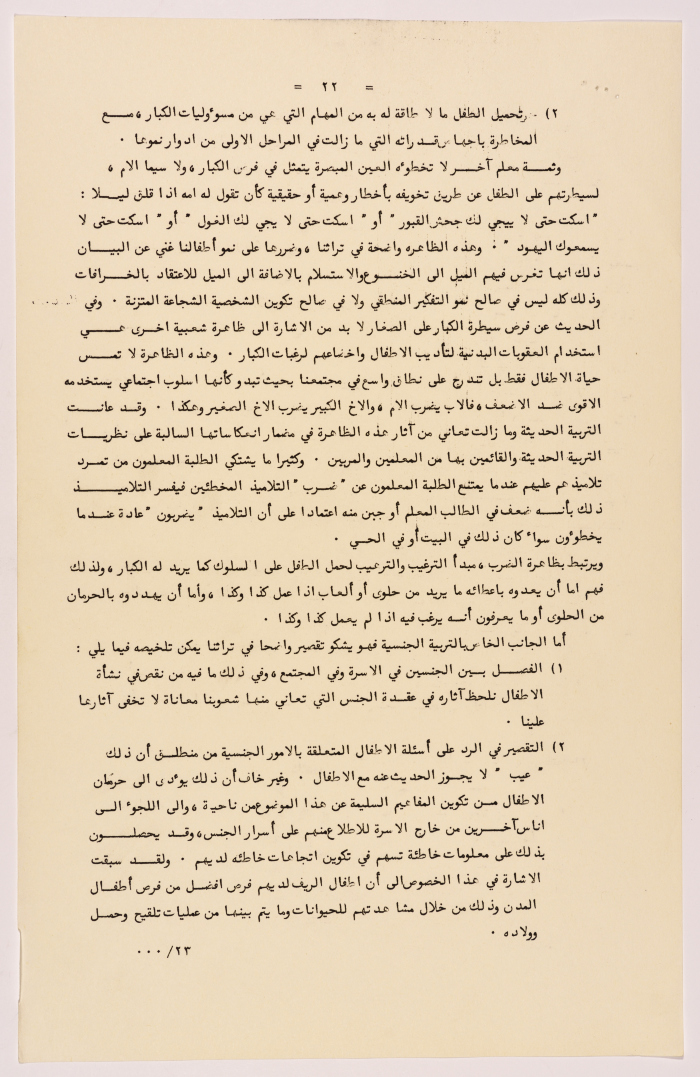 = ٢٢ =
٢) - تحميل الطفل ما لا طاقة له به من المهام التي هي من مسؤوليات الكبار ، مـــع
المخاطرة باجهاض قدراته التي ما زالت في المراحل الاولى من ادوار نموها .
وثمـــة معلم آخـــر لا تخطوءه العين المبصرة يتمثل في فرض الكبار ، ولا سيما الام ،
لسيطرتهم على الطفل عن طريق تخويفه بأخطار وهمية أو حقيقية كأن تقول له امه اذا قلق ليـــلا :
" اسكت حتى لا ييجي لك جحش القبور " أو " اسكت حتى لا يجي لك الغول " أو " اسكت حتى لا
يسمعوك اليهود " . وهذه الظاهره واضحة في تراثنا ، وضررها على نمو أطفالنا غني عن البيـــان
ذلك انها تغرس فيهم الميل الى الخنـــوع والاستسلام بالاضافة الى الميل للاعتقاد بالخـــرافات
وذلك كله ليس في صالح نمو التفكير المنطقي ولا في صالح تكوين الشخصية الشجاعة المتزنة . وفي
الحديث عن فرض سيطرة الكبار على الصغار لا بد من الاشارة الى ظاهرة شعبية اخرى هـــي
استخدام العقوبات البدنية لتأديب الاطفال واخضاعهم لرغبات الكبار . وهذه الظاهرة لا تمـــس
حياة الاطفال فقط بل تندرج على نطاق واسع في مجتمعنا بحيث تبدو كأنها اسلوب اجتماعي يستخدمه
الاقوى ضـــد الاضعف ، فالاب يضرب الام ، والاخ الكبير يضرب الاخ الصغير وهكذا . وقـــد عانـــت
التربية الحديثة وما زالت تعاني من آثار هذه الظاهرة في مضمار انعكاساتها السالبة على نظريـــات
التربية الحديثة والقائمين بها من المعلمين والمربين . وكثيرا ما يشتكي الطلبة المعلمون من تمـــرد
تلاميذهم عليهم عندما يمتنع الطلبة المعلمون عن " ضـــرب " التلاميذ المخطئين فيفسر التلاميـــذ
ذلك بأنـــه ضعف في الطالب المعلم أو جبن منه اعتمادا على أن التلاميذ " يضربون " عادة عندمـــا
يخطوءون سواء كان ذلك في البيت أو في الحـــي .
ويرتبط بظاهرة الضرب ، مبدأ الترغيب والترهيب لحمل الطفل على السلوك كما يريد له الكبار ، ولذلك
فهم اما أن يعدوه باعطائه ما يريد من حلوى أو ألعاب اذا عمل كذا وكذا ، وأما أن يهددوه بالحرمان
من الحلوى أو ما يعرفون أنـــه يرغب فيه اذا لم يعمل كذا وكذا .
أما الجانب الخاص بالتربية الجنسية فهو يشكو تقصير واضحا في تراثنا يمكن تلخيصه فيما يلي :
١) الفصـــل بـــين الجنسين في الاسرة وفي المجتمع ، وفي ذلك ما فيه من نقص في نشأة
الاطفال نلحظ آثاره في عقـــدة الجنس التي تعاني منهـــا شعوبنا معاناة لا تخفى آثارها
علينا .
٢) التقصير في الرد على أسئلة الاطفال المتعلقة بالامور الجنسية من منطلـــق أن ذلك
" عيب " لا يجوز الحديث عنه مع الاطفال . وغير خاف أن ذلك يوءدي الى حرمان
الاطفال مـــن تكوين المفاهيم السليمة عن هذا الموضوع من ناحية ، والى اللجوء الـــى
اناس آخـــرين من خارج الاسرة للاطلاع منهم على أسرار الجنس ، وقـــد يحصلـــون
بذلك على معلومات خاطئة تسهم في تكوين اتجاهات خاطئه لديهم . ولقـــد سبقت
الاشارة في هذا الخصوص الى أن اطفال الريف لديهم فرص افضل من فرص أطفـــال
المدن وذلك من خلال مشاهدتهم للحيوانات وما يتم بينها من عمليات تلقيح وحمـــل
وولاده .
٢٣/ ٠٠٠